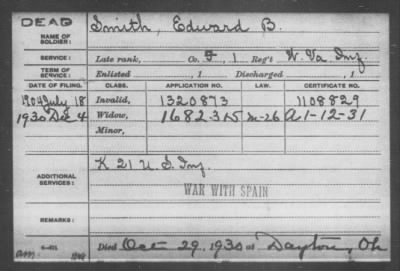 DEAD
NAME OF SOLDIER: Smith, Edward B.
SERVICE: Late rank, Co. F, 1 Reg't W. Va. Inf.
TERM OF SERVICE: Enlisted , 1 Discharged , 1
DATE OF FILING. CLASS. APPLICATION NO. LAW. CERTIFICATE NO.
1904 July 18 Invalid, 1320873 1108829
1930 Dec 4 Widow, 1682315 M-26 A 1-12-31
Minor,
ADDITIONAL SERVICES: K 21 U. S. Inf.
WAR WITH SPAIN
REMARKS:
Died Oct 29, 1930 at Dayton, Oh